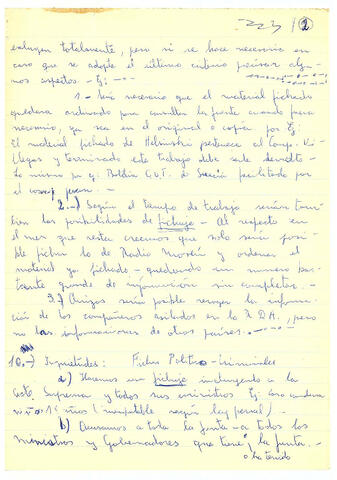 2
excluyen totalmente, pero si se hace necesario en
caso que se adopte el último criterio precisar algu-
nos aspectos - Ej:
1.- Sería necesario que el material fichado
quedara archivado para consultar la fuente cuando fuera
necesario, ya sea en el original o copia por Ej:
El material fichado de Helsinski pertenece al Comp. Vi-
llegas y terminado este trabajo debe serle devuelto -
Lo mismo p. ej. Boletín CUT. de Suecia facilitado por
el
2.-) Según el tiempo de trabajo serían tam-
bien las posibilidades de fichaje - Al respecto en
el mes que resta creemos que solo sería posi-
ble fichar lo de Radio Moscú y ordenar el
material ya fichado - quedando un numero bas-
tante grande de información sin completar. -
3.) Quizas sería posible recoger la informa-
ción de los compañeros asilados en la RDA, pero
no las informaciones de otros países.
10.-) Inquietudes: Fichas Politico-criminales
a) Hacemos un fichaje incluyendo a la
Corte Suprema y todos sus ministros Ej: caso condena
niño 15 años (inimputable según ley penal). -
b) Acusamos a toda la junta - a todos los
ministros y Gobernadores que tiene la junta. -
o ha tenido